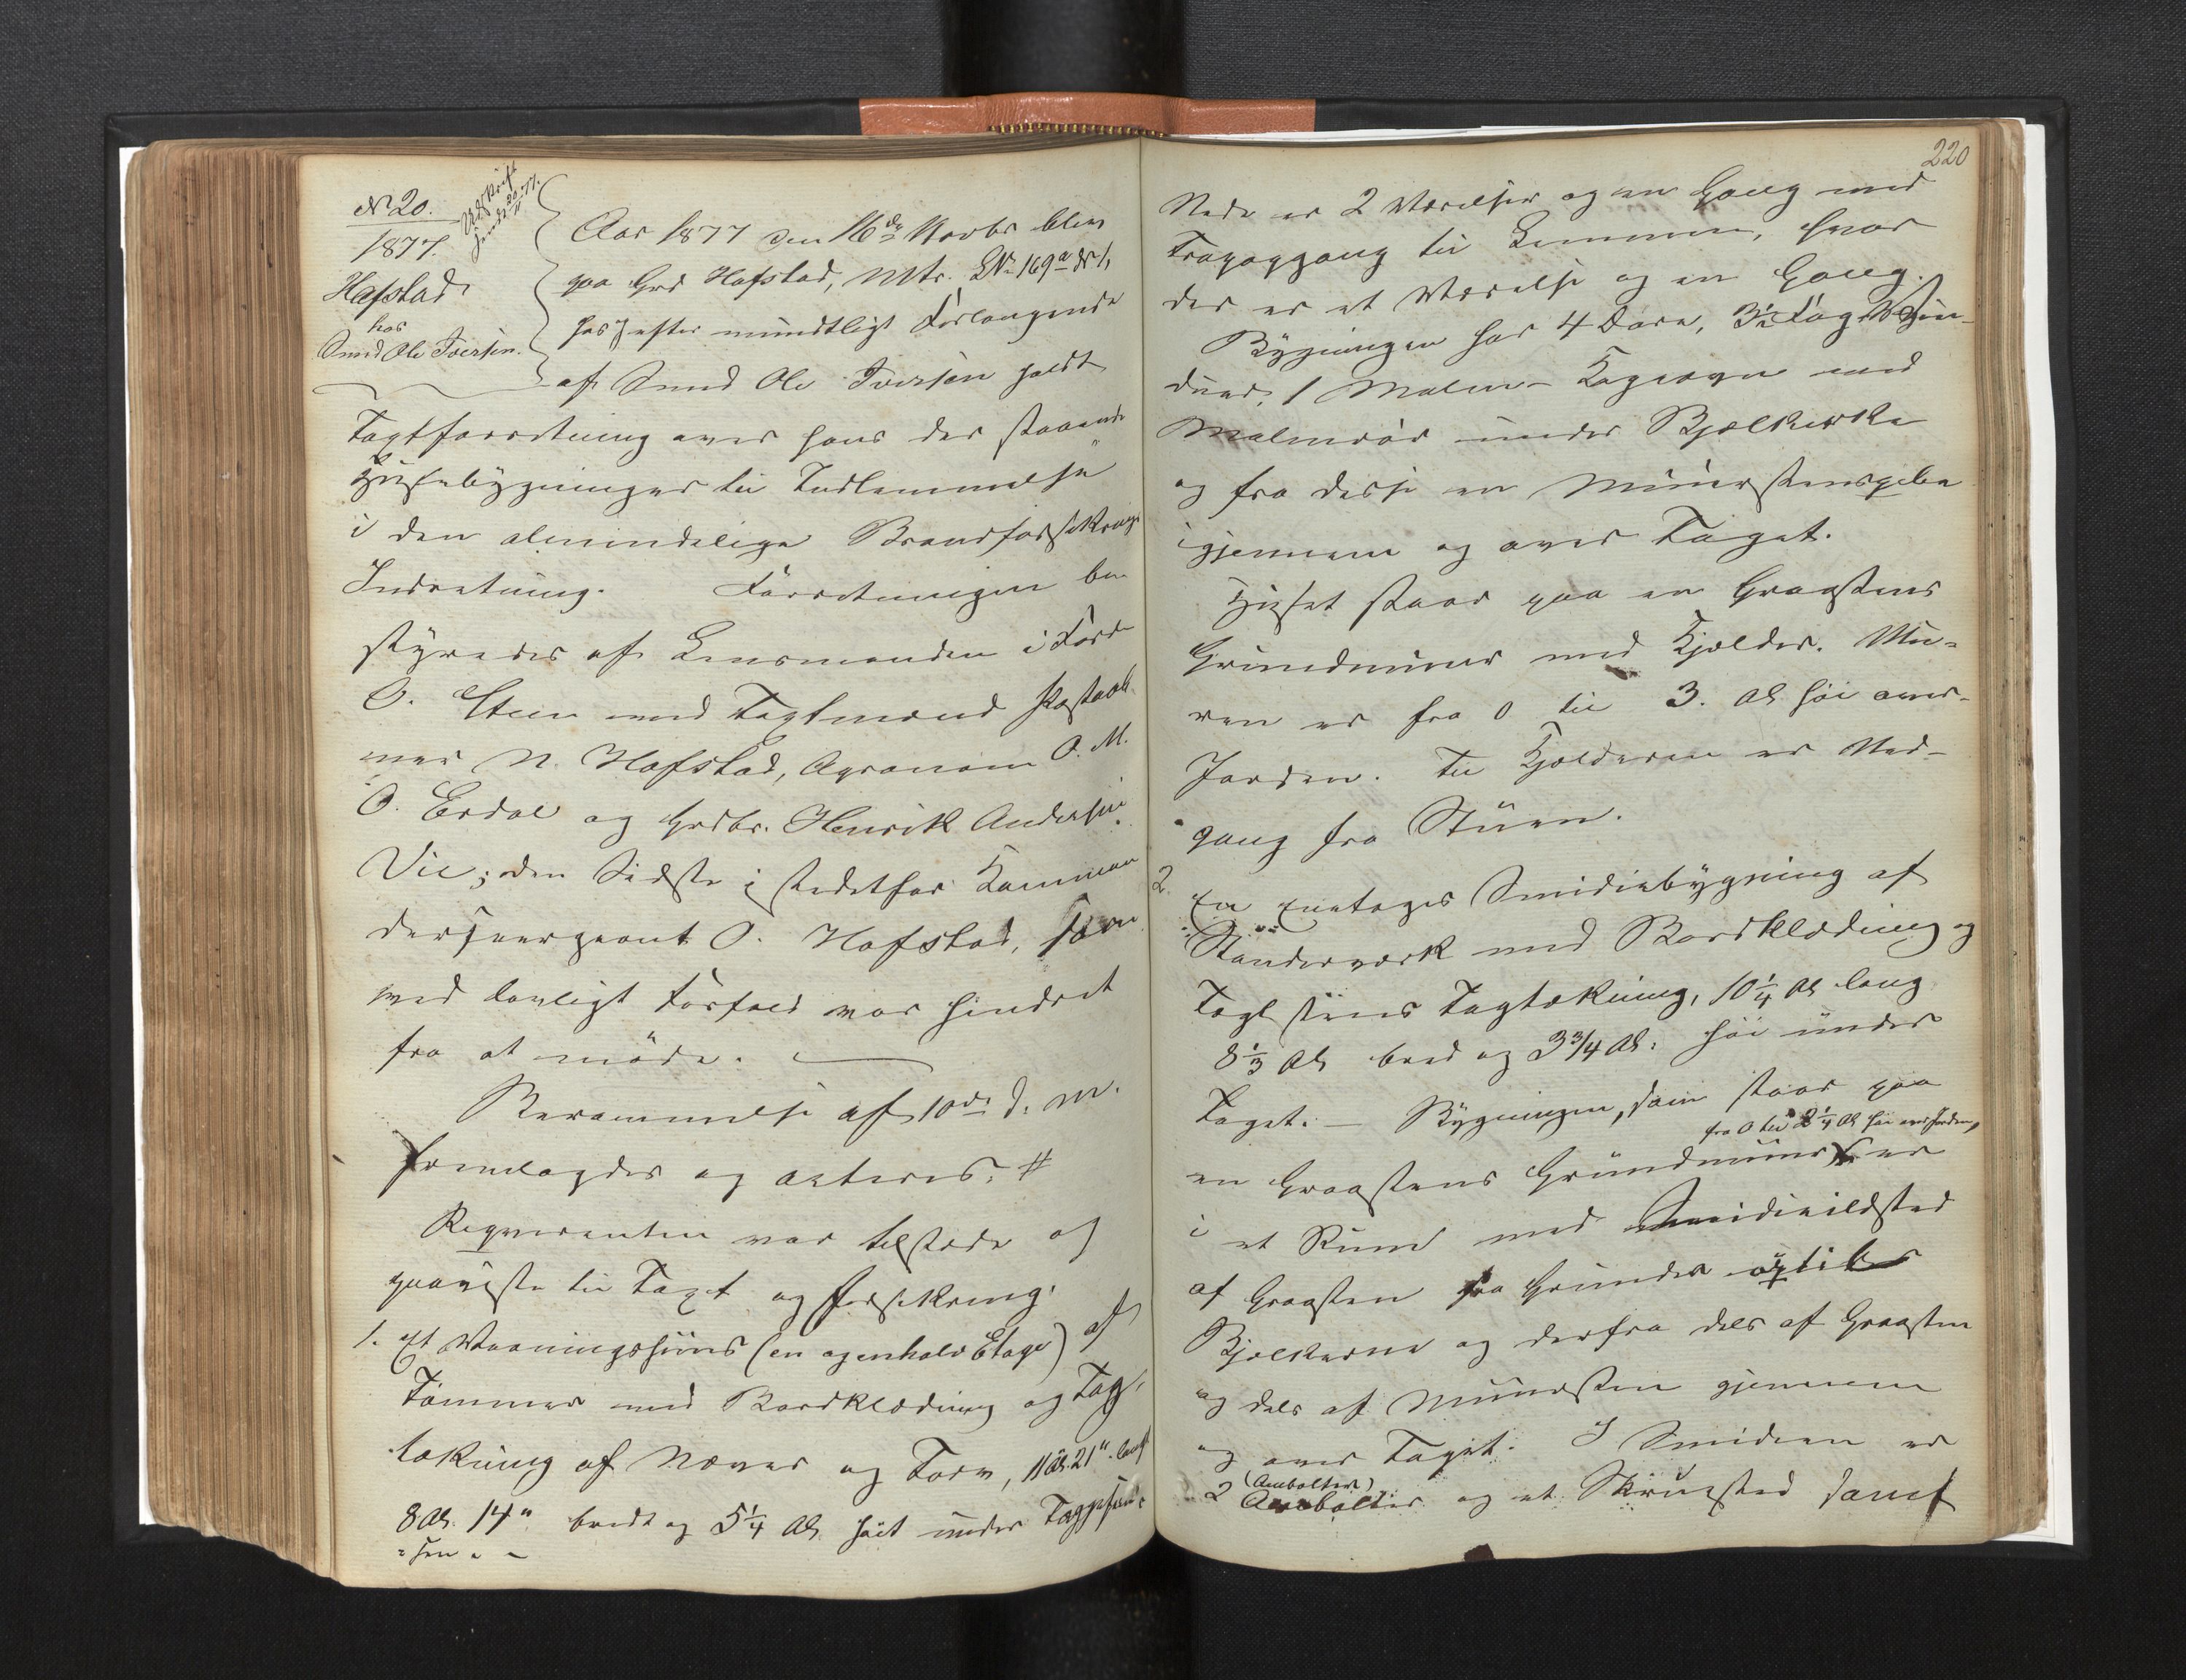 N 20.
1877.
Hafstad
hos
Smed Ole Iversen.
Udskrift
sendt 20/11 77.
Aar 1877 den 16de Novbr blev
paa Grd Hafstad, Mtr. LNo 169a
efter mundtligt Forlangende
af Smed Ole Iversen holdt
Taxtforretning over hans der staaende
Huusebygninger til Indlemmelse
i den almindelige Brandforsikrings
Indretning. Forretningen be-
styredes af Lensmanden i Førde
O. Steen med Taxtmænd
N. Hafstad, Agronom O. M.
O. Erdal og Grdbr. Henrik Andersen
Vie; den Sidste istedetfor Komman
dersergeant O. Hafstad, som
ved lovligt Forfald var hindret
fra at møde.
Berammelse af 10de d. M.
fremlagdes og acteres. #
Reqverenten var tilstede og
paaviste til Taxt og Forsikring:
1. Et Vaaningshuus (en og en halv Etage) af
Tømmer med Bordklædning og Tag-
tækning af Næver og Torv, 11 Al. 21" langt
8 Al. 14" bredt og 5 1/4 Al høit under
220
Nede er 2 Værelser og en Gang med
Trapegang til Lemmen, hvor
der er et Værelse og en Gang.
Bygningen har 4 Døre, 3 1/2 Fag Vin-
duer, 1 Malm-Kogeovn med
Malmrør under Bjelkerke
og fra disse en Muursteenspibe
igjennem og over Taget.
Huset staar paa en Graasteens
Grundmuur med Kjelder. Mu-
ren er fra 0 til 3. Al høi over
Jorden. Til Kjelderen er Ned-
gang fra Stuen.
2. En eenetages Smidiebygning af
Standerværk med Bordklædning og
Taglsteens Tagtækning, 10 1/4 Al lang
8 1/3 Al bred og 3 3/4 Al: høi under
Taget. – Bygningen, som staar paa
fra 0 til 2 1/4 Al høi over Jorden,
en Graasteens Grundmuur, er
i et Rum med Smidieildsted
af Graasten fra Grunden optil
Bjelkerne og derfra dels af Graasten
og dels af Muursten gjennem
og over Taget. I Smidien er
(Ambolter)
2 Ambolter og et Skruested samt